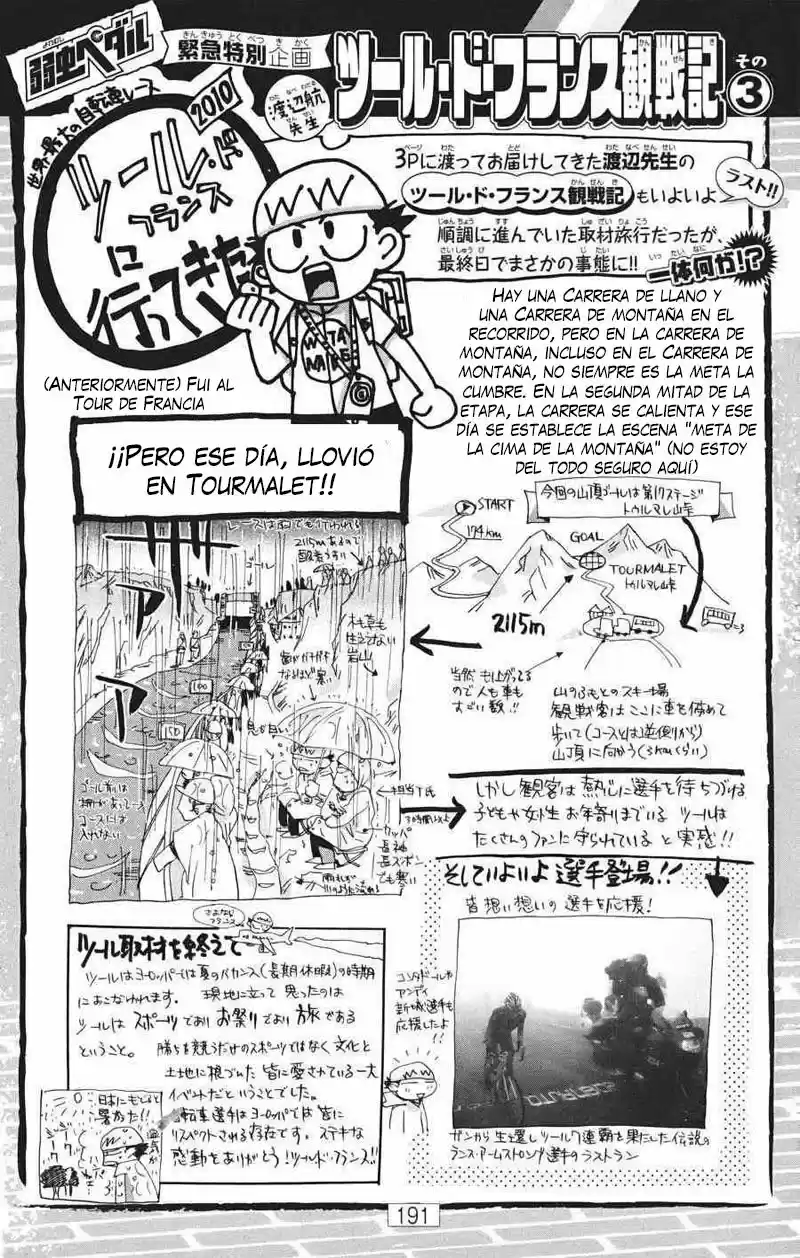 弱虫ペダル
緊急特別企画
ツール・ド・フランス観戦記 その3
渡辺航先生
世界最大の自転車レース
2010
ツール・ド
フランス
に
行ってきた
3Pに渡ってお届けしてきた渡辺先生の
ツール・ド・フランス観戦記もいよいよ
ラスト!!
順調に進んでいた取材旅行だったが、
最終日でまさかの事態に!!
一体何が!?
WATA
NABE
(Anteriormente) Fui al
Tour de Francia
Hay una Carrera de llano y
una Carrera de montaña en el
recorrido, pero en la carrera de
montaña, incluso en el Carrera de
montaña, no siempre es la meta la
cumbre. En la segunda mitad de la
etapa, la carrera se calienta y ese
día se establece la escena "meta de
la cima de la montaña" (no estoy
del todo seguro aquí)
¡¡Pero ese día, llovió
en Tourmalet!!
START
174km
今回の山頂ゴールは第17ステージ
トゥルマレ山峠
GOAL
TOURMALET
トゥルマレ山峠
2115m
当然
ので人も車も
すごい数!!
山のふもとのスキー場
観戦客はここに車を停めて
歩いて(コースとは逆側から)
山頂に向かう(3kmくらい)
レースは雨でも行われる
2115mあるので
酸素うすい
ゴール
木も草も
生えてない
岩山
100
150
息が白い
ゴール前は
柵があってレース
コースには
入れない
担当T氏
3時間以上
カッパ
長袖
長ズボン
でも寒い
しかし観客は熱心に選手を待ちつづける
子どもや女性お年寄りまでいる ツールは
たくさんのファンに守られていると実感!!
そしていよいよ選手登場!!
皆想い想いの選手を応援!
コンタドールや
アンディ
新城選手も
応援したよ!!
ガンから生還しツール7連覇を果たした伝説の
ランス・アームストロング選手のラストラン
さよなら
フランス
ツール取材を終えて
ツールはヨーロッパでは夏のバカンス(長期休暇)の時期
におこなわれます。 現地に立って思ったのは
ツールはスポーツでありお祭りであり旅である
ということ。 勝ちを競うだけのスポーツではなく文化と
土地に根づいた皆に愛されている一大
イベントだということでした。
自転車選手はヨーロッパでは皆に
リスペクトされる存在です。ステキな
感動をありがとう!ツールド・フランス!!
日本にもどると
暑かった!!
191